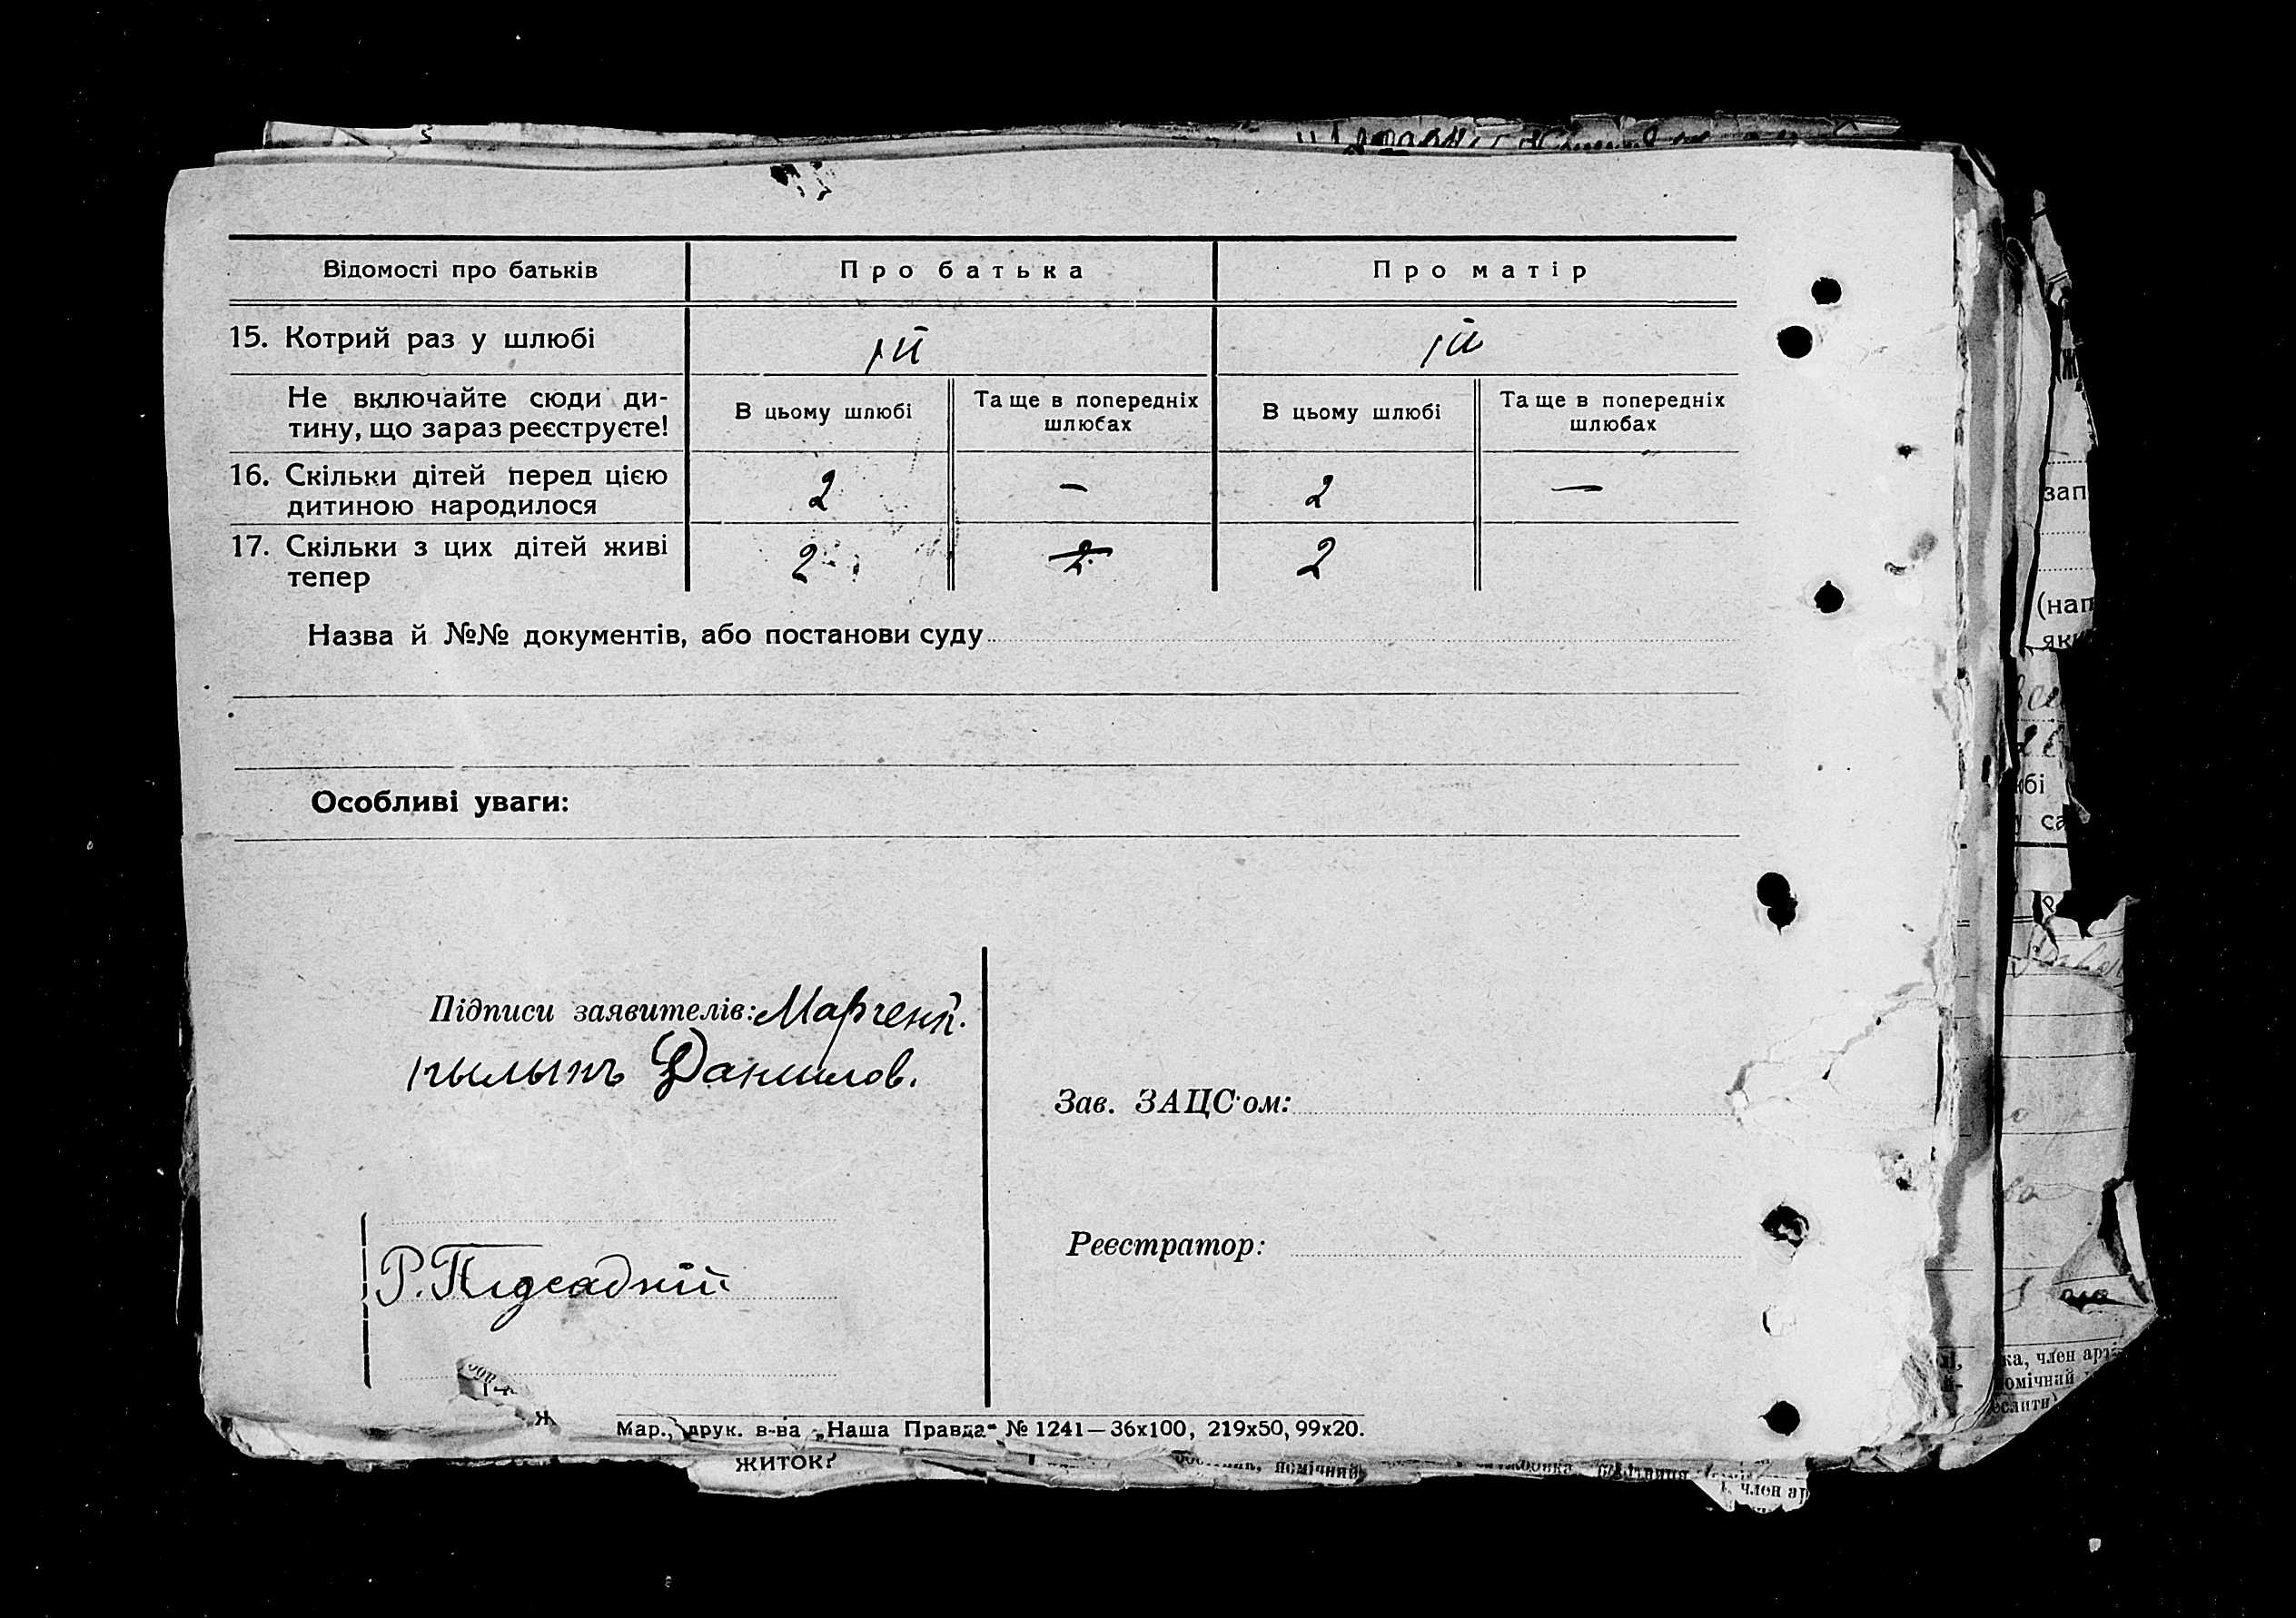 Відомості про батьків
Про батька
Про матір
15. Котрий раз у шлюбі
1й
1й
Не включайте сюди ди-
тину, що зараз реєструєте!
В цьому шлюбі
Та ще в попередніх
шлюбах
В цьому шлюбі
Та ще в попередніх
шлюбах
16. Скільки дітей перед цією
дитиною народилося
2
–
2
—
17. Скільки з цих дітей живі
тепер
2
2
2
Назва й №№ документів, або постанови суду
Особливі уваги:
Підписи заявителів: Марченк.
пылыпъ Данилов.
Р. Підсадній
Зав. ЗАЦС'ом:
Реєстратор:
Мар., друк. в-ва „Наша Правда“ № 1241—36х100, 219х50, 99х20.
житок?
зап
(нап
як
бі
са
ка, член арт
омічний
член ар
помічний